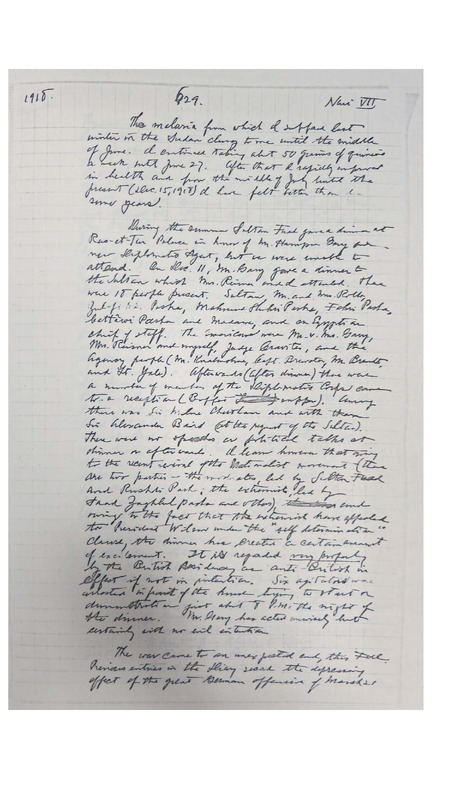 1918. 629. Navi VII
The malaria from which I suffered last
winter in the Sudan clung to me until the middle
of June. I continued taking abt 50 grains of quinine
a week until June 27. After that I rapidly improved
in health and from the middle of July until the
present (Dec. 15, 1918) I have felt better than in
some years.
During the summer Sultan Fuad gave a dinner at
Ras-et-Tin Palace in honor of Mr. Hampson Gary our
new Diplomatic Agent, but we were unable to
attend. On Dec. 11, Mr. Gary gave a dinner to
the Sultan which Mrs. Reisner and I attended. There
were 18 people present. Sultan, Mr. and Mrs. Rolo,
Pasha, Mahmud Pasha, Pasha,
Pasha and Madame, and an Egyptian
chief of staff. The Americans were Mr. & Mrs. Gary,
Mrs. Reisner and myself, Judge and the
Agency people (Mr. Capt. Mr.
and Lt. Yale). Afterwards (after dinner) there were
a number of members of the Diplomatic Corps came
to a reception (Buffet supper). Among
these was Sir Milne Cheetham and with them
Sir Alexander Baird (at the request of the Sultan).
There were no speeches or political talks at
dinner or afterwards. I learn however that owing
to the recent revival of the Nationalist movement (there
are two parties - the moderates, led by Sultan Fuad
and Rushdi Pasha; the extremists, led by
Saad Zaghlul Pasha and others) and
owing to the fact that the extremists have appealed
to President Wilson under the "self determination"
clause, the dinner has created a certain amount
of excitement. It is regarded very properly
by the British Residency as anti-British in
effect if not in intention. Six agitators were
arrested in front of the house trying to start a
demonstration just abt 8 P.M. the night of
the dinner. Mr. Gary has acted unwisely but
certainly with no evil intention
The war came to an unexpected end, this Fall.
Previous entries in the Diary the depressing
effect of the great German offensive of March 21